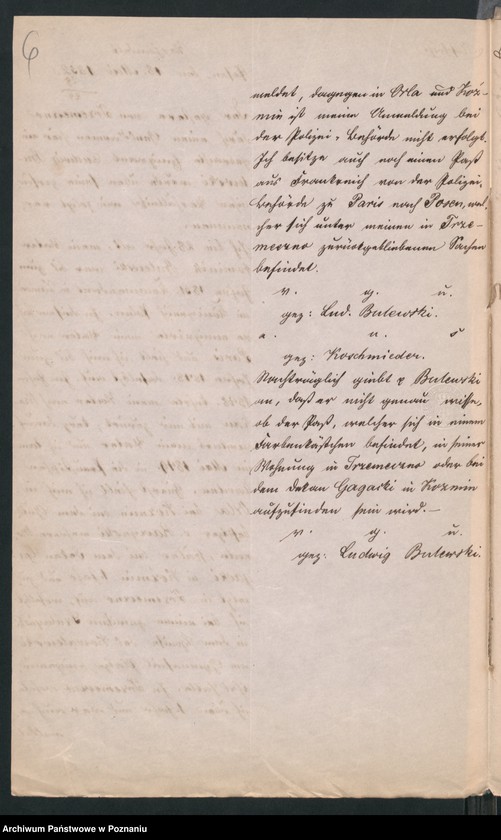 6
meldet, dagegen in Orla und Koź-
min ist meine Anmeldung bei
der Polizei-Behörde nicht erfolgt.
Ich besitze auch noch einen Paß
aus Frankreich von der Polizei-
Behörde zu Paris nach Posen, wel-
cher sich unter meinen in Trze-
meczno zurückgebliebenen Sachen
befindet.
v. g. u.
gez: Lud. Bulewski.
a. u. s
gez: Koschmieder.
Nachträglich giebt p Bulewski
an, daß er nicht genau wisse,
ob der Paß, welcher sich in einem
Farbenkästchen befindet, in seiner
Wohnung in Trzemeczno oder bei
dem Dekan Gagacki in Kozmin
aufzufinden sein wird. –
v. g. u.
gez: Ludwig Bulewski.
Archiwum Państwowe w Poznaniu